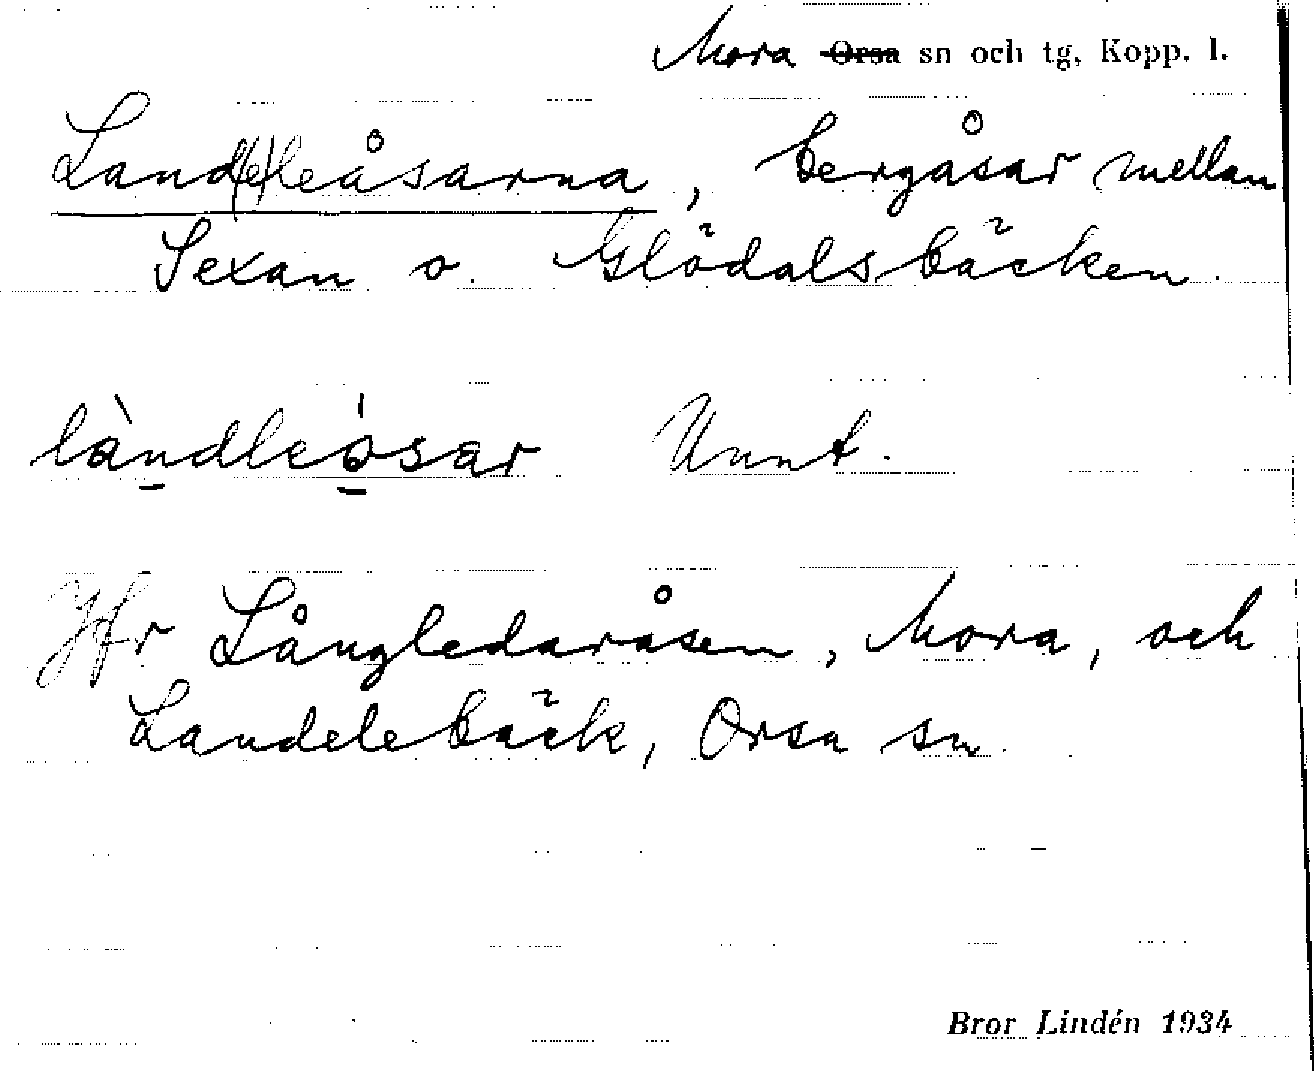 Mora Orsa sn och tg, Kopp. l.
Land(e)leåsarna, bergåsar mellan
Sexan o. Glödalsbäcken.
làndleósar Unnt.
Jfr Långledaråsen, Mora, och
Landelebäck, Orsa sn
Bror Lindén 1934